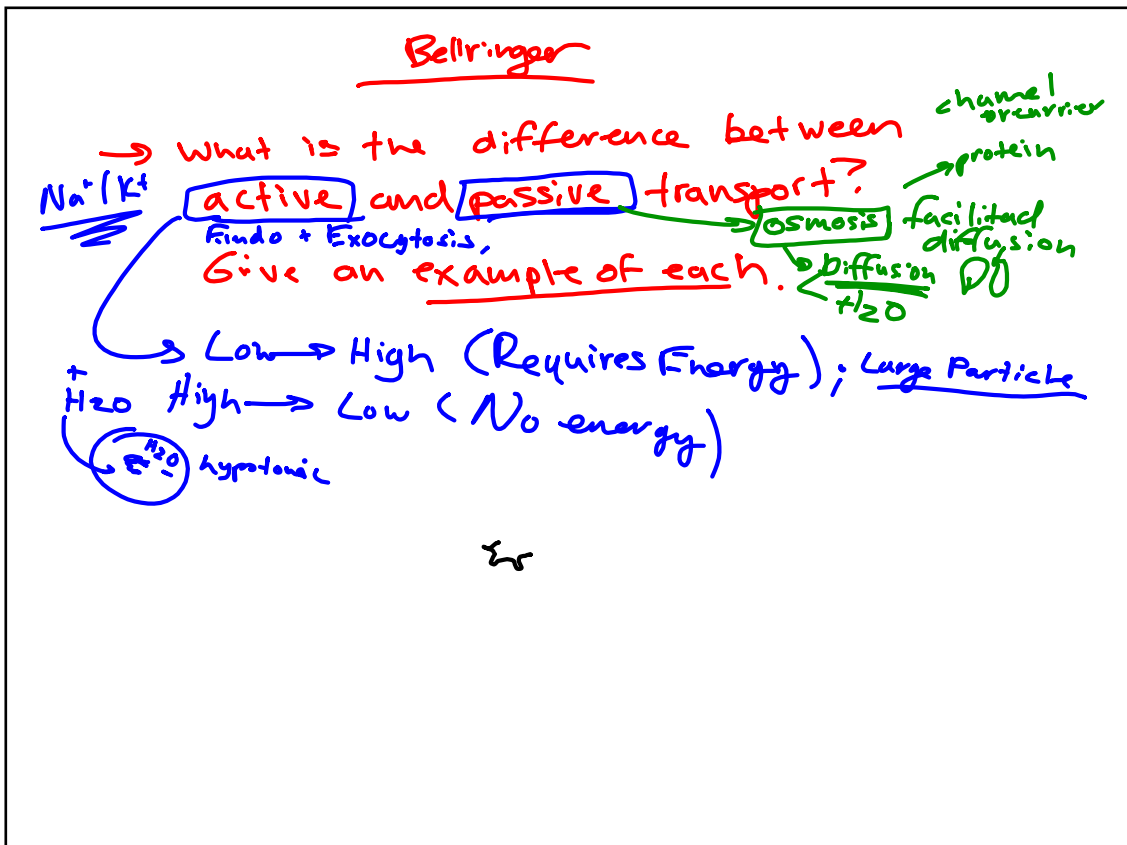 Bellringer
channel
or carrier
→ What is the difference between
→ protein
Na⁺/K⁺
active and passive transport?
Endo + Exocytosis,
osmosis facilitad
diffusion
Give an example of each.
Diffusion
H2O
Low → High (Requires Energy); Large Particle
+
H2O High → Low (No energy)
H2O
hypotonic